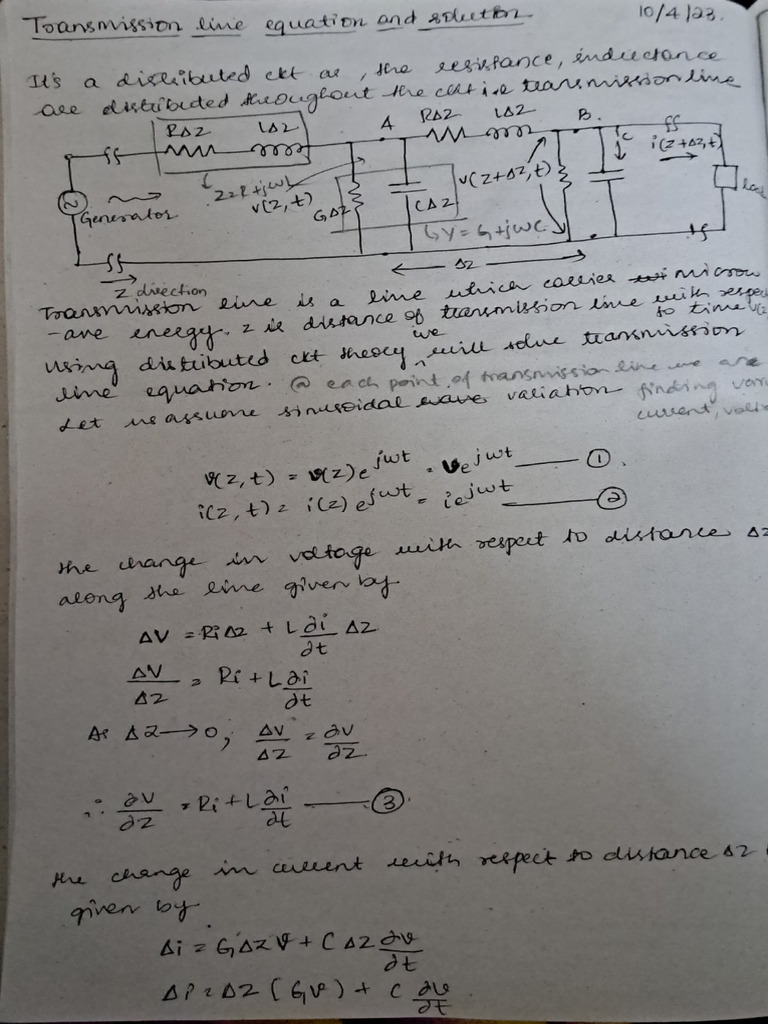 Transmission line equation and solution
10/4/23.
It's a distributed ckt as, the resistance, inductance
are distributed throughout the ckt i.e transmission line
RΔZ LΔZ A RΔZ LΔZ B. C
i(z+Δz,t)
Z=R+jωL
v(z,t)
v(z+Δz,t)
Generator
GΔZ CΔZ
Y=G+jωC
Δz
z direction
Transmission line is a line which carries microw
-ave energy. z is distance of transmission line with respe
to time
Using distributed ckt theory we will solve transmission
line equation. @ each point of transmission line we are
finding
Let us assume sinusoidal wave variation
current,
v(z,t) = v(z)e^jωt = ve^jωt — ①.
i(z,t) = i(z)e^jωt = ie^jωt — ②
the change in voltage with respect to distance Δz
along the line given by
ΔV = RiΔz + L ∂i/∂t Δz
ΔV/Δz = Ri + L ∂i/∂t
As Δz → 0; ΔV/Δz = ∂v/∂z
∴ ∂v/∂z = Ri + L ∂i/∂t — ③.
the change in current with respect to distance Δz
given by
Δi = GΔz v + CΔz ∂v/∂t
Δi = Δz (Gv) + C ∂v/∂t